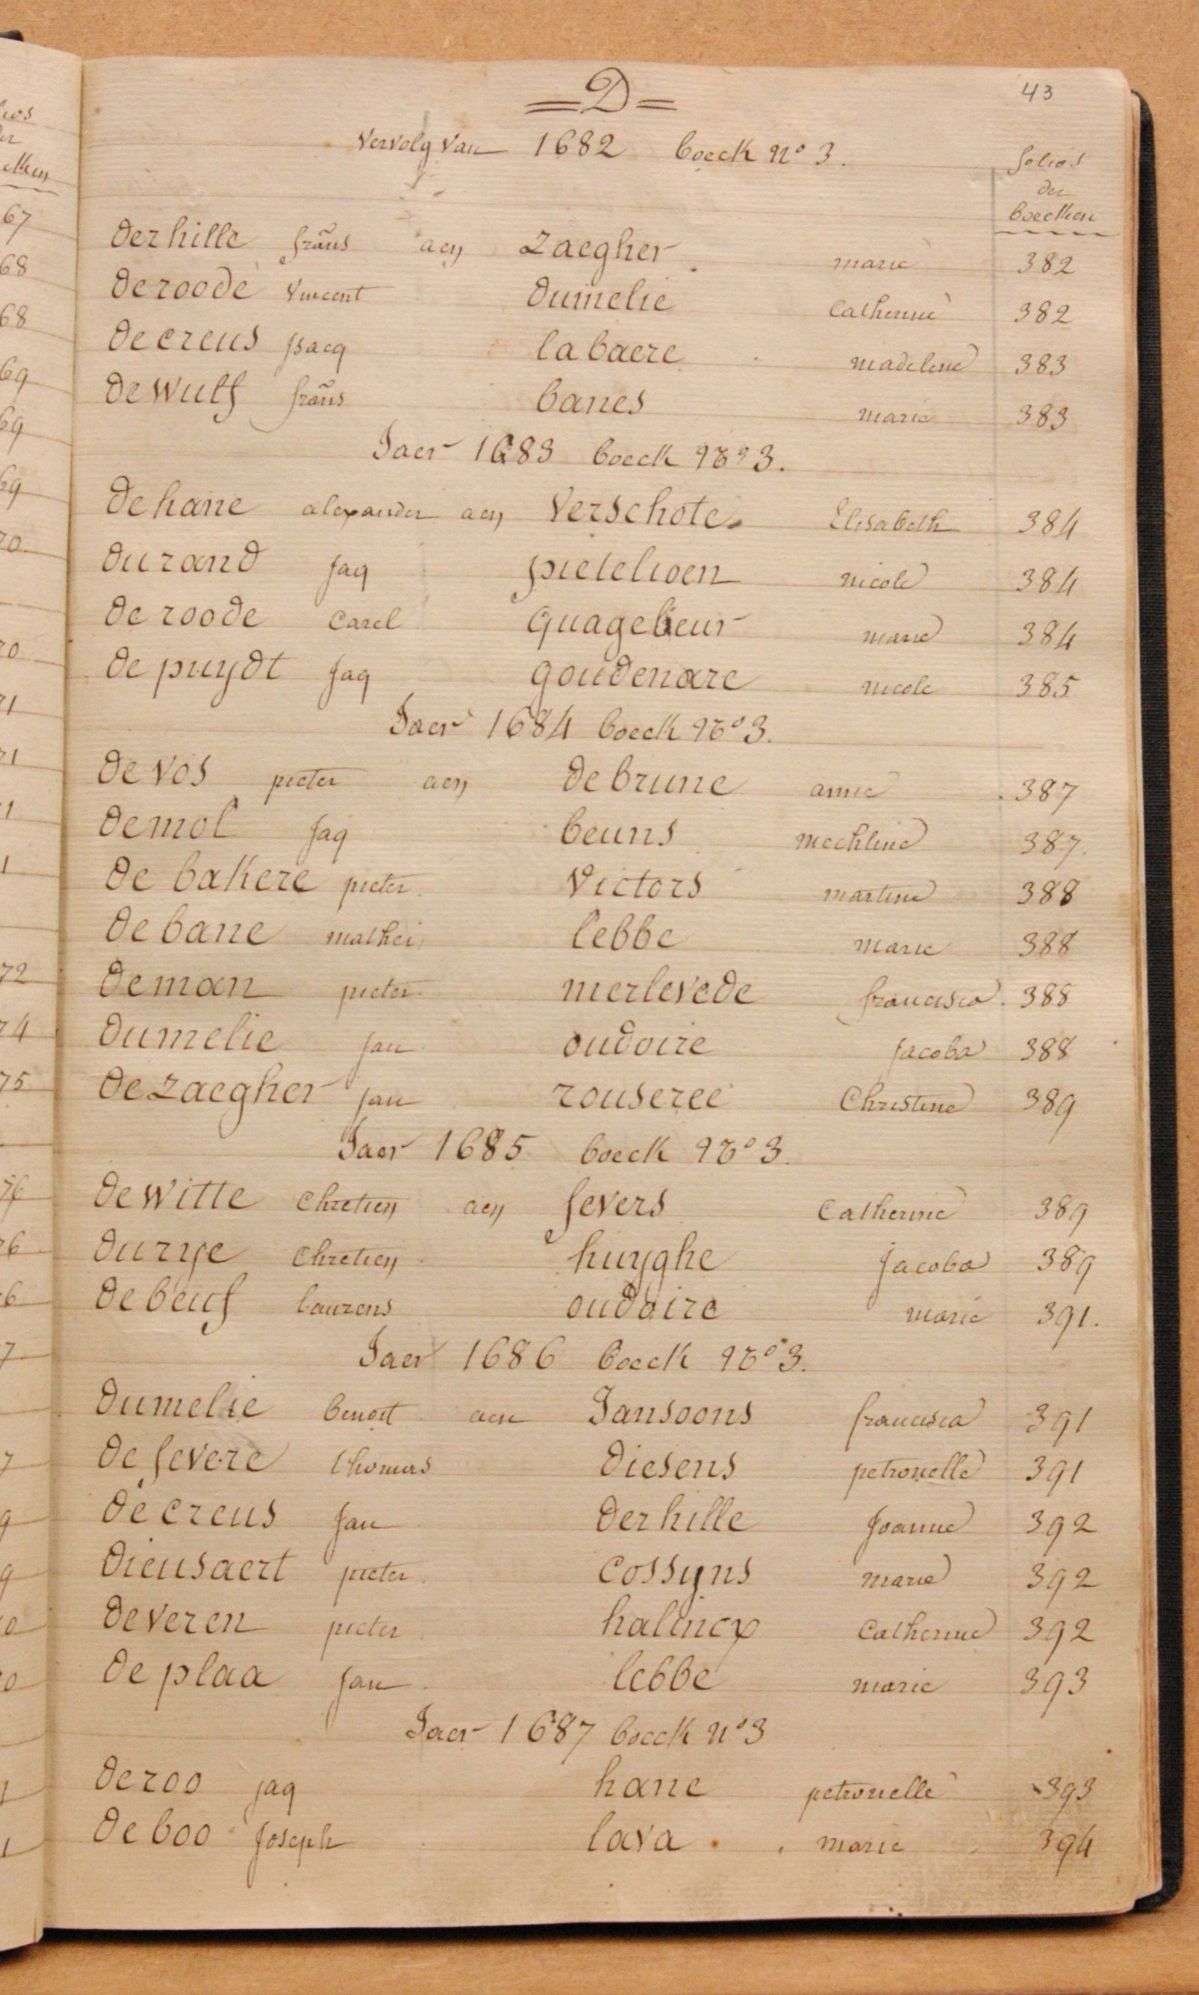 43
= D =
Vervolg van 1682 boeck No 3.
folios
der
boecken
Derhille frans aen Zaegher marie 382
Deroode Vincent Dumelie Catherine 382
Decreus Jsacq labaere madeleine 383
Dewulf frans banes marie 383
Jaer 1683 boeck No 3.
Dehane alexander aen Verschote Elisabeth 384
Durand Jaq pieielioen nicole 384
De roode Carel quagebeur marie 384
De puydt Jaq goudenare nicole 385
Jaer 1684 boeck No 3.
De vos pieter aen de brune anne 387
Demol Jaq beuns mechline 387
De bakere pieter Victors martine 388
De bane mathei lebbe marie 388
Deman pieter merlevede francisca 388
Dumelie Jan oudoire Jacoba 388
De Zaegher Jan rouseree Christine 389
Jaer 1685 boeck No 3.
De Witte Chretien aen fevers Catherine 389
Durye Chretien huyghe Jacoba 389
De beuf laurens oudoire marie 391.
Jaer 1686 boeck No 3.
Dumelie benoit aen Jansoons francisca 391
De fevere thomas Diesens petronelle 391
Decreus Jan Derhille Joanne 392
Dieusaert pieter cossyns marie 392
Deveren pieter halincx Catherine 392
De plaa Jan lebbe marie 393
Jaer 1687 boeck No 3
Deroo jaq hane petronelle 393
De boo Joseph lava marie 394